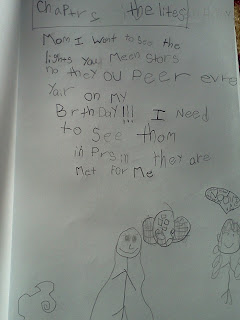 Chaptrs the lites
Mom I Want to see the
lights you Meen stors
no they ou Peer evre
Yair on My
BirthDAY!!! I Need
to See thom
in Prsin they are
Met For Me